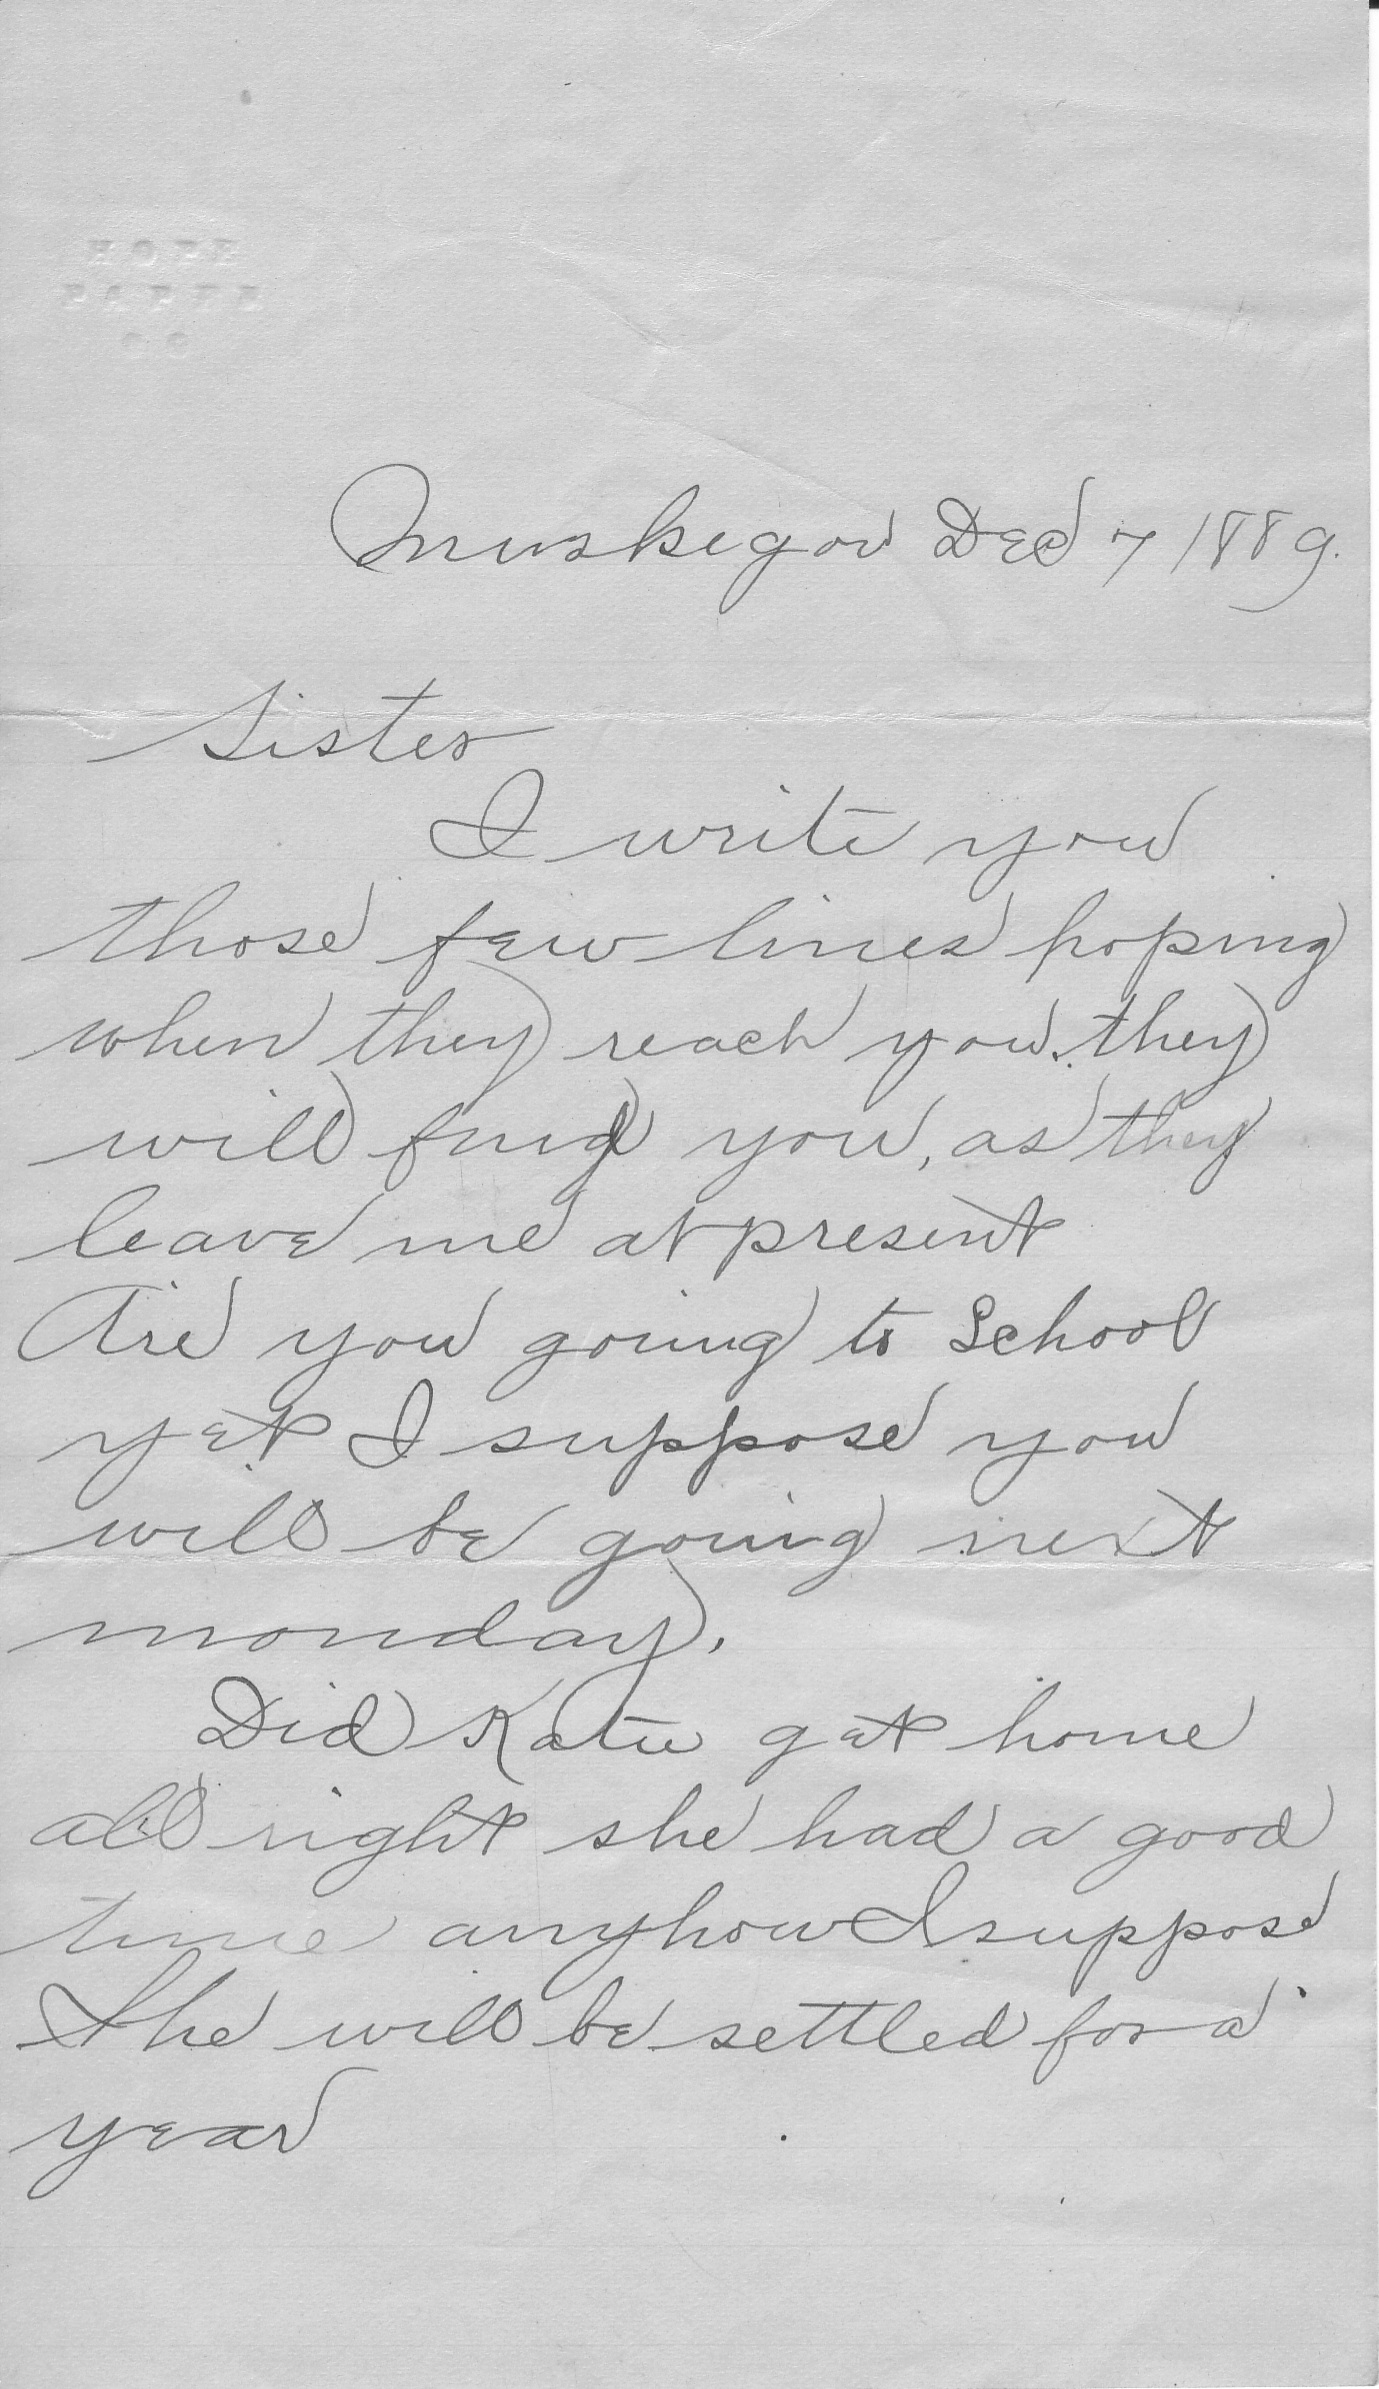 HOPE
PAPER
CO
Muskegon Dec 7 1889.
Sister
I write you
those few lines hoping
when they reach you they
will find you, as they
leave me at present
Are you going to School
yet I suppose you
will be going next
monday.
Did Katie get home
all right she had a good
time anyhow I suppose
She will be settled for a
year